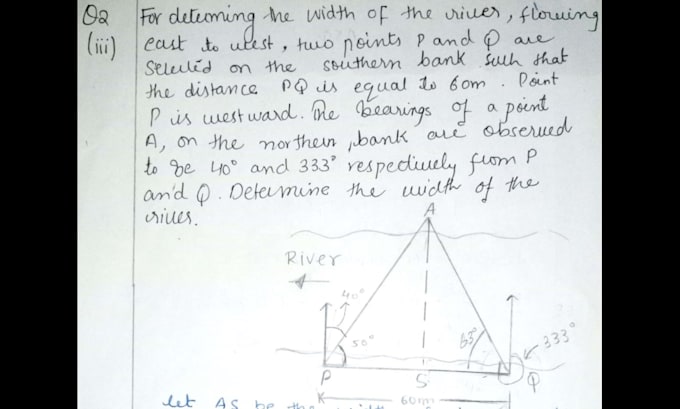 Q2 For deterning the width of the river, flowing
(iii) east to west, two points P and Q are
selected on the southern bank such that
the distance PQ is equal to 60m. Point
P is westward. The bearings of a point
A, on the northern bank are observed
to be 40° and 333° respectively from P
and Q. Determine the width of the
river.
A
River
40°
50°
63°
333°
P
S
Q
60m
let AS be the